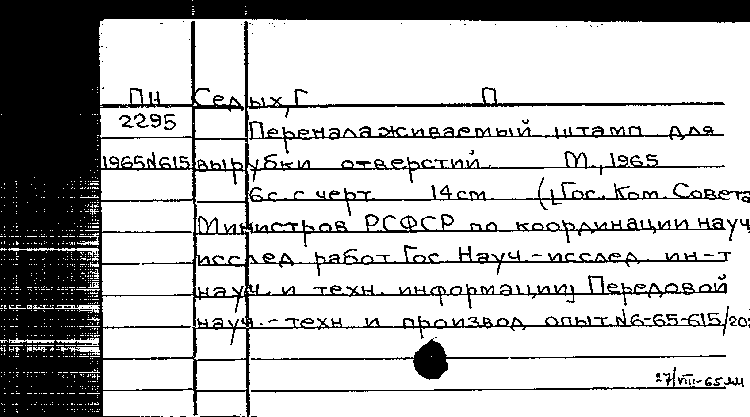 ПН Седых, Г П
2295 Переналаживаемый штамп для
1965N615 вырубки отверстий М., 1965
6с. с черт. 14см. (Гос. Ком. Совета
Министров РСФСР по координации науч
исслед. работ. Гос. Науч.-исслед. ин-т
науч. и техн. информации) Передовой
науч.-техн. и производ. опыт. N6-65-615/20
27/VIII-65